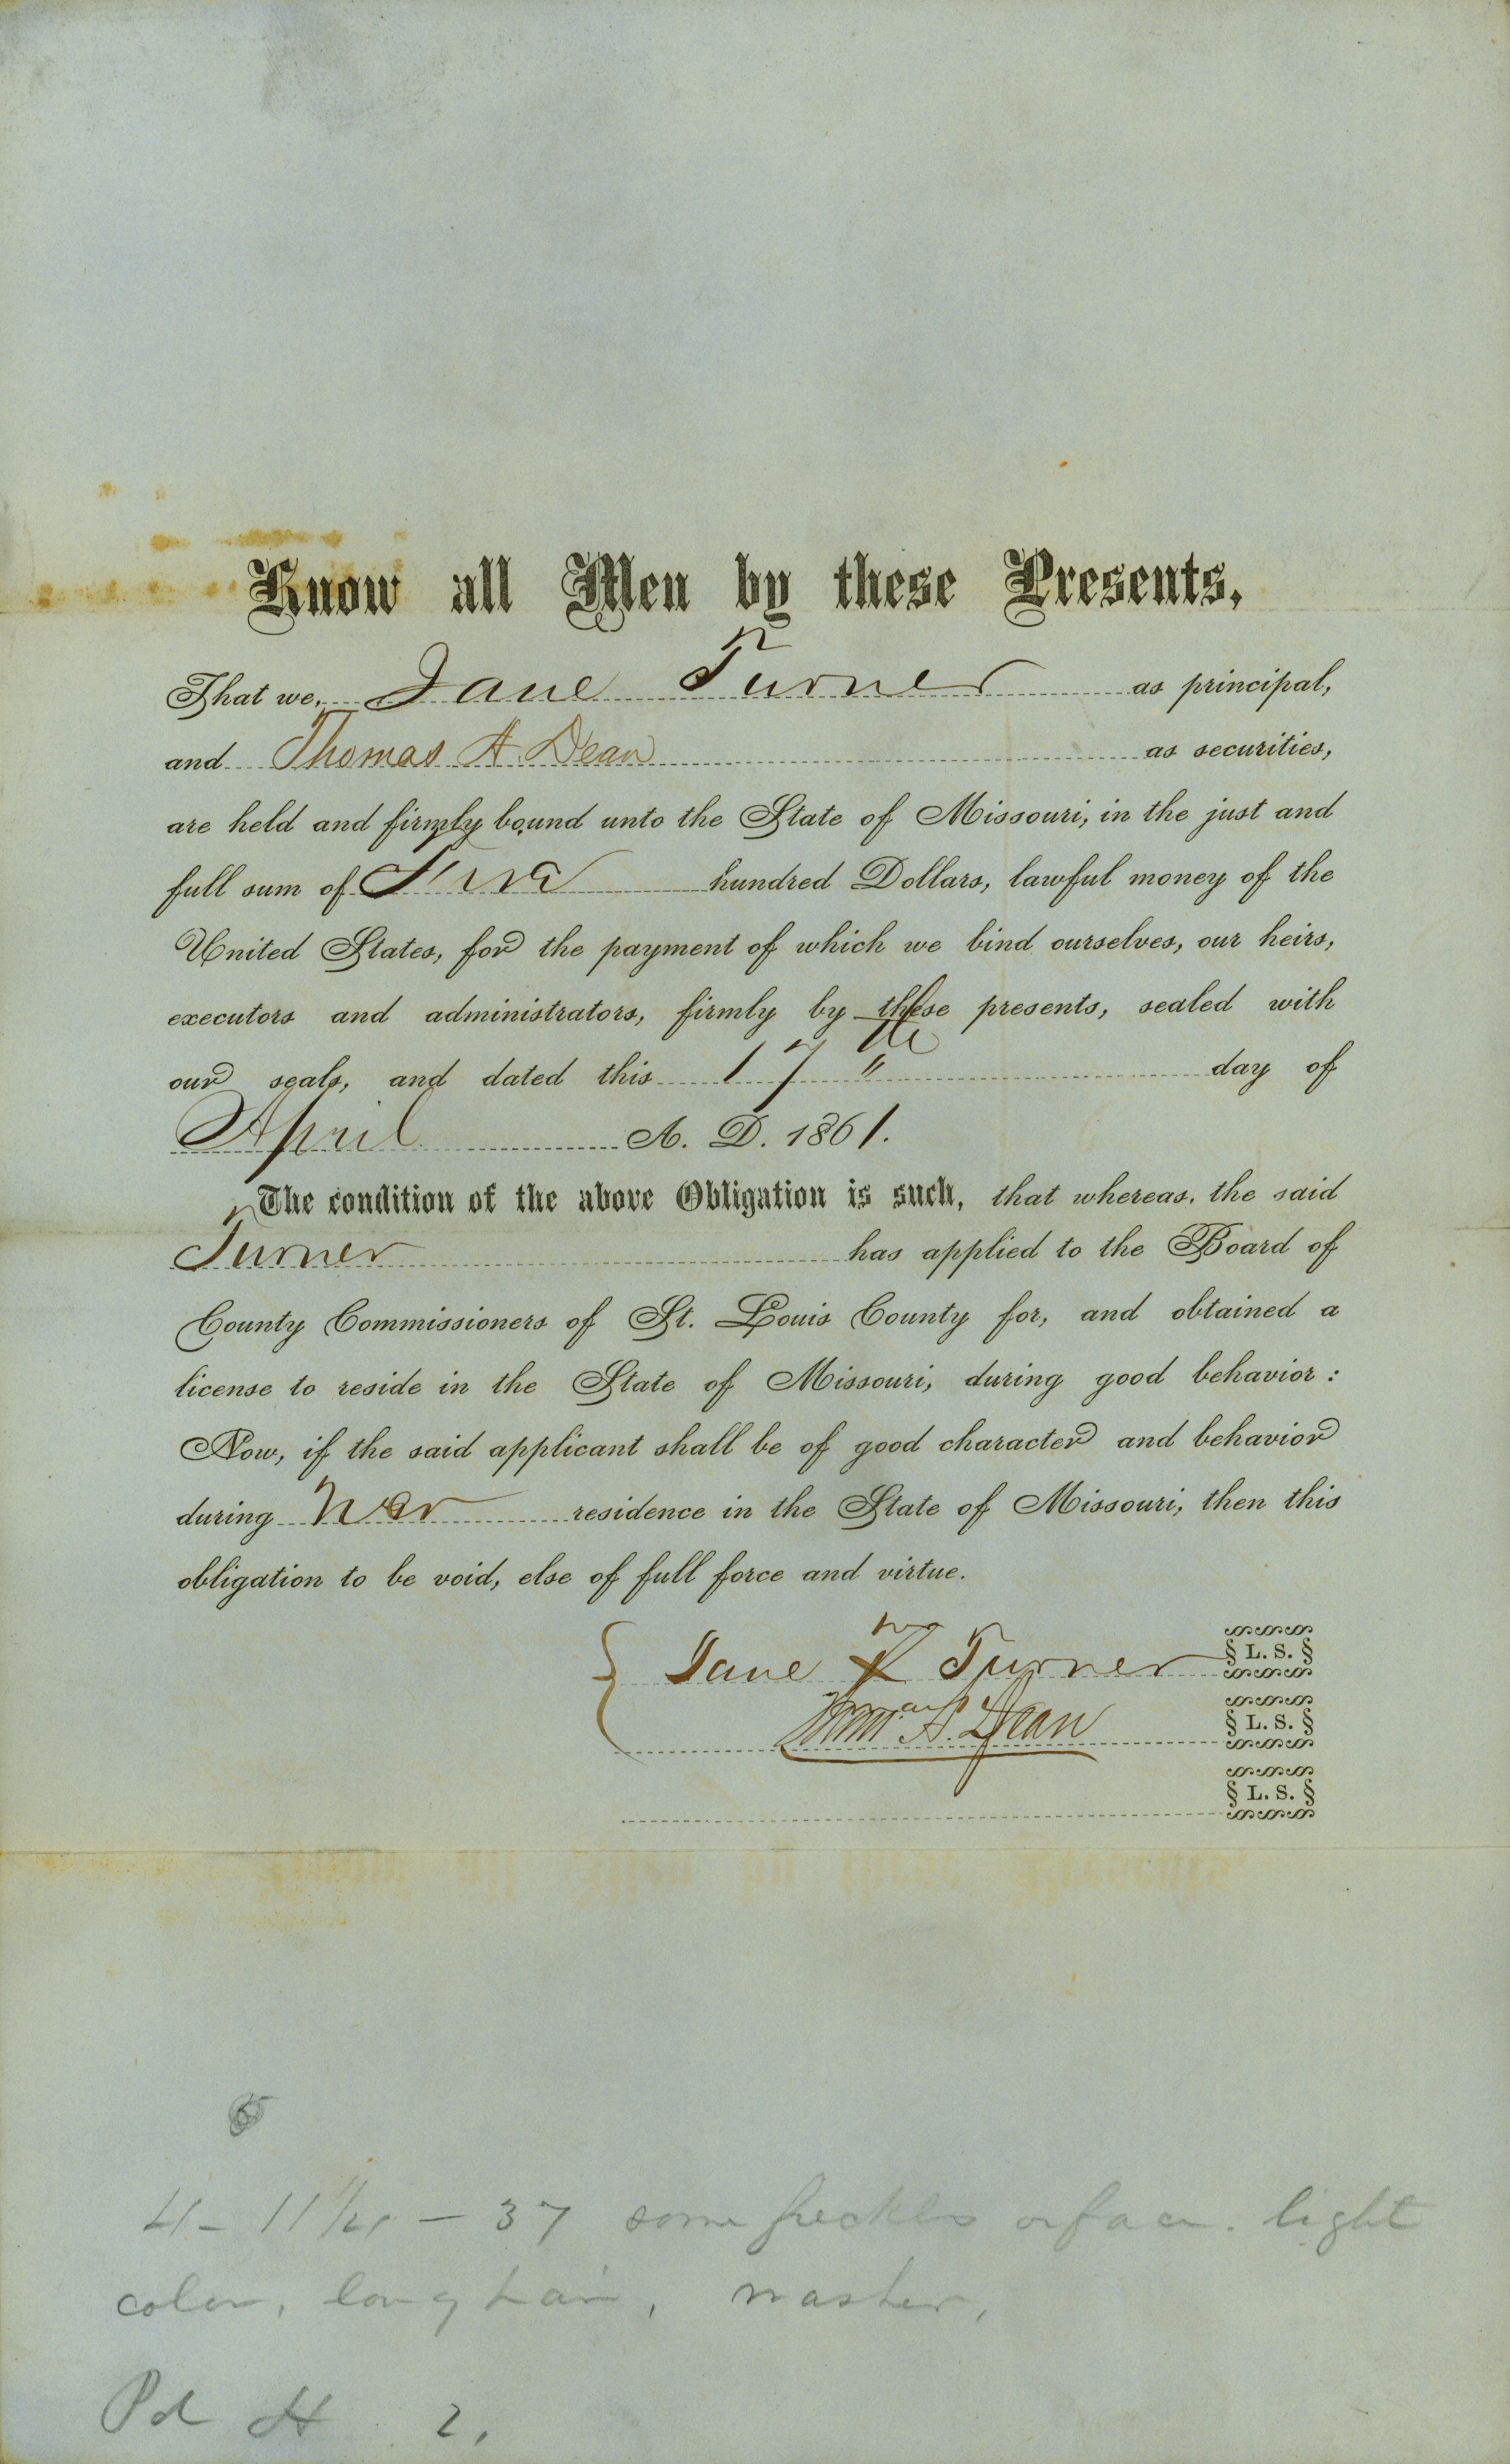 Know all Men by these Presents,
That we, Jane Turner as principal,
and Thomas A. Dean as securities,
are held and firmly bound unto the State of Missouri, in the just and
full sum of hundred Dollars, lawful money of the
United States, for the payment of which we bind ourselves, our heirs,
executors and administrators, firmly by these presents, sealed with
our seals, and dated this 17th day of
April A. D. 1861.
The condition of the above Obligation is such, that whereas, the said
Turner has applied to the Board of
County Commissioners of St. Louis County for, and obtained a
license to reside in the State of Missouri, during good behavior:
Now, if the said applicant shall be of good character and behavior
during her residence in the State of Missouri, then this
obligation to be void, else of full force and virtue.
Jane X Turner L. S.
A. Dean L. S.
L. S.
4 - 11 1/4 - 37 some freckles face. light
color, long hair, washer,
Pd H 2.